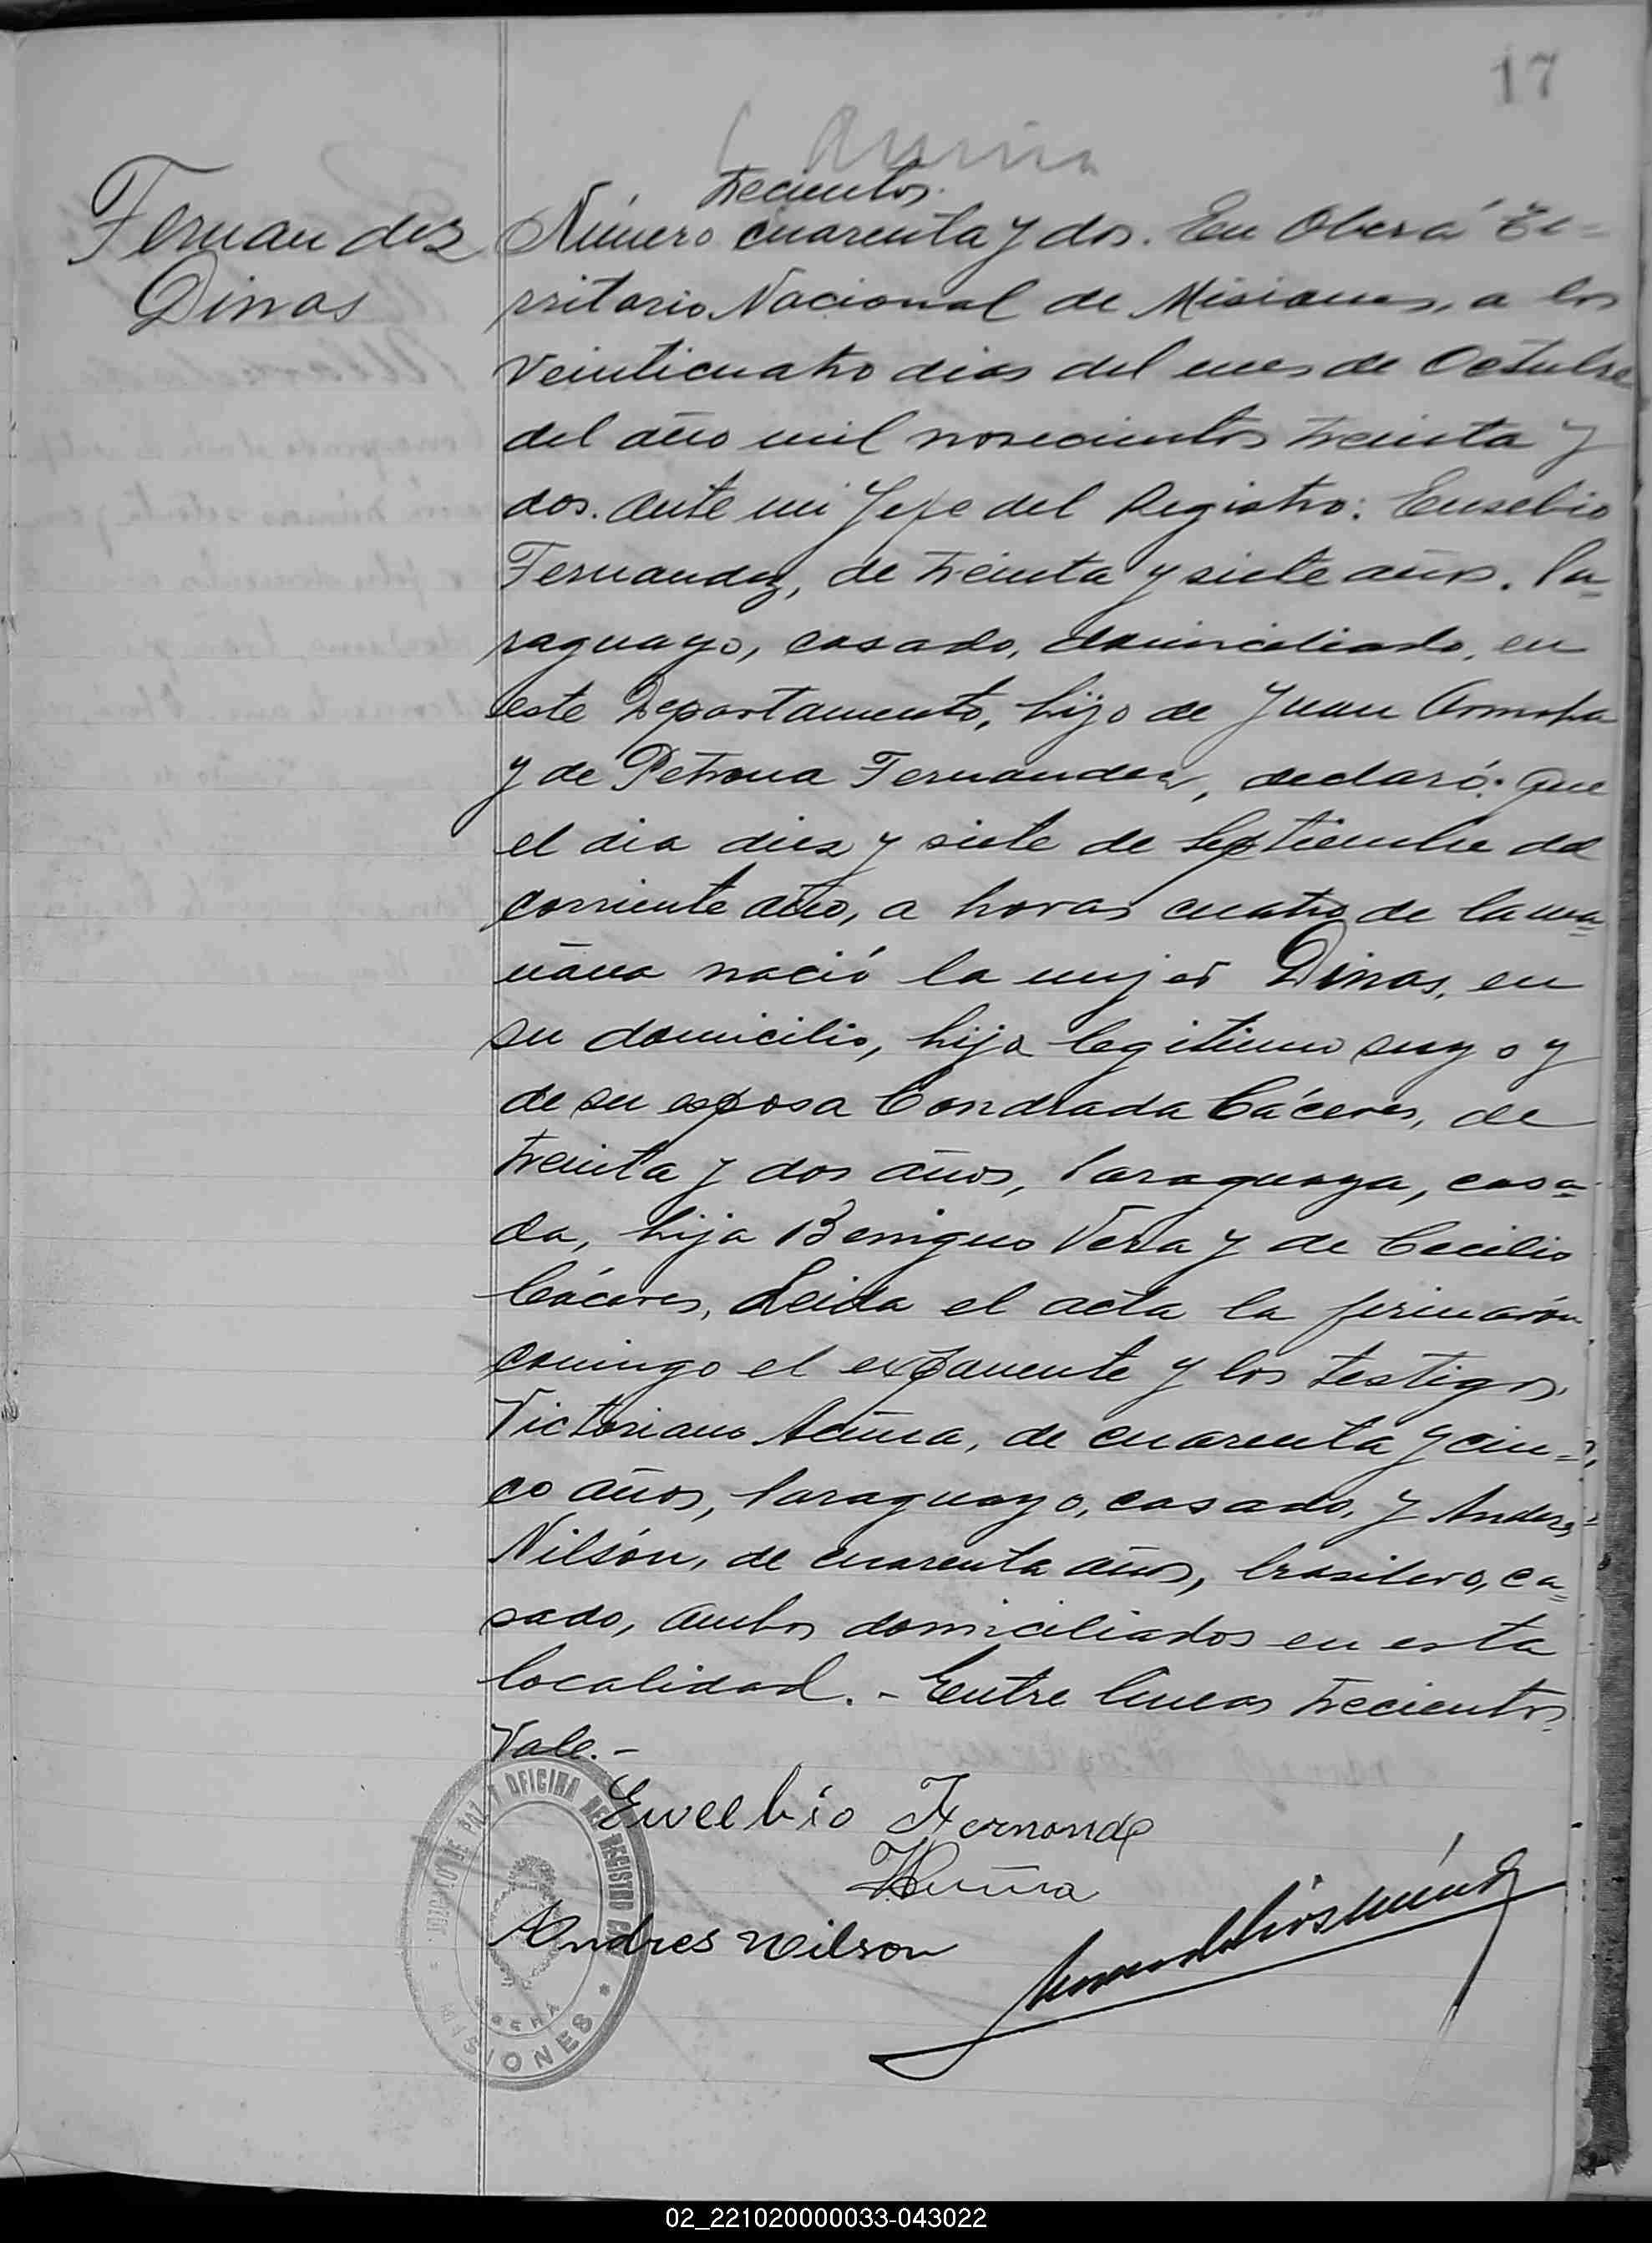 17
Fernandez
Dinas
trecientos.
Número cuarenta y dos. En Oberá Te=
rritorio Nacional de Misiones, a los
veinticuatro dias del mes de Octubre
del año mil novecientos treinta y
dos. ante mi Jefe del Registro: Eusebio
Fernandez, de treinta y siete años. Pa=
raguayo, casado, domiciliado, en
este Departamento, hijo de Juan
y de Petrona Fernandez, declaró: Que
el dia diez y siete de Septiembre del
corriente año, a horas cuatro de la ma=
ñana nació la mujer Dinas, en
su domicilio, hija legitimo suyo y
de su esposa Condrada Cáceres, de
treinta y dos años, Paraguaya, casa=
da, hija Benigno Vera y de Cecilio
Cáceres, Leida el acta la firmarón
comingo el exponente y los testigos,
Victoriano Acuña, de cuarenta y cin=
co años, Paraguayo, casado, y Andres
Nilsón, de cuarenta años, brasilero, ca=
sado, ambos domiciliados en esta
localidad. - Entre lineas trecientos
Vale.-
Eusebio Fernande
VAcuña
Andres Nilson
JUZGADO DE PAZ Y OFICINA DEL REGISTRO CIVIL
OBERÁ
* MISIONES *
02_221020000033-043022